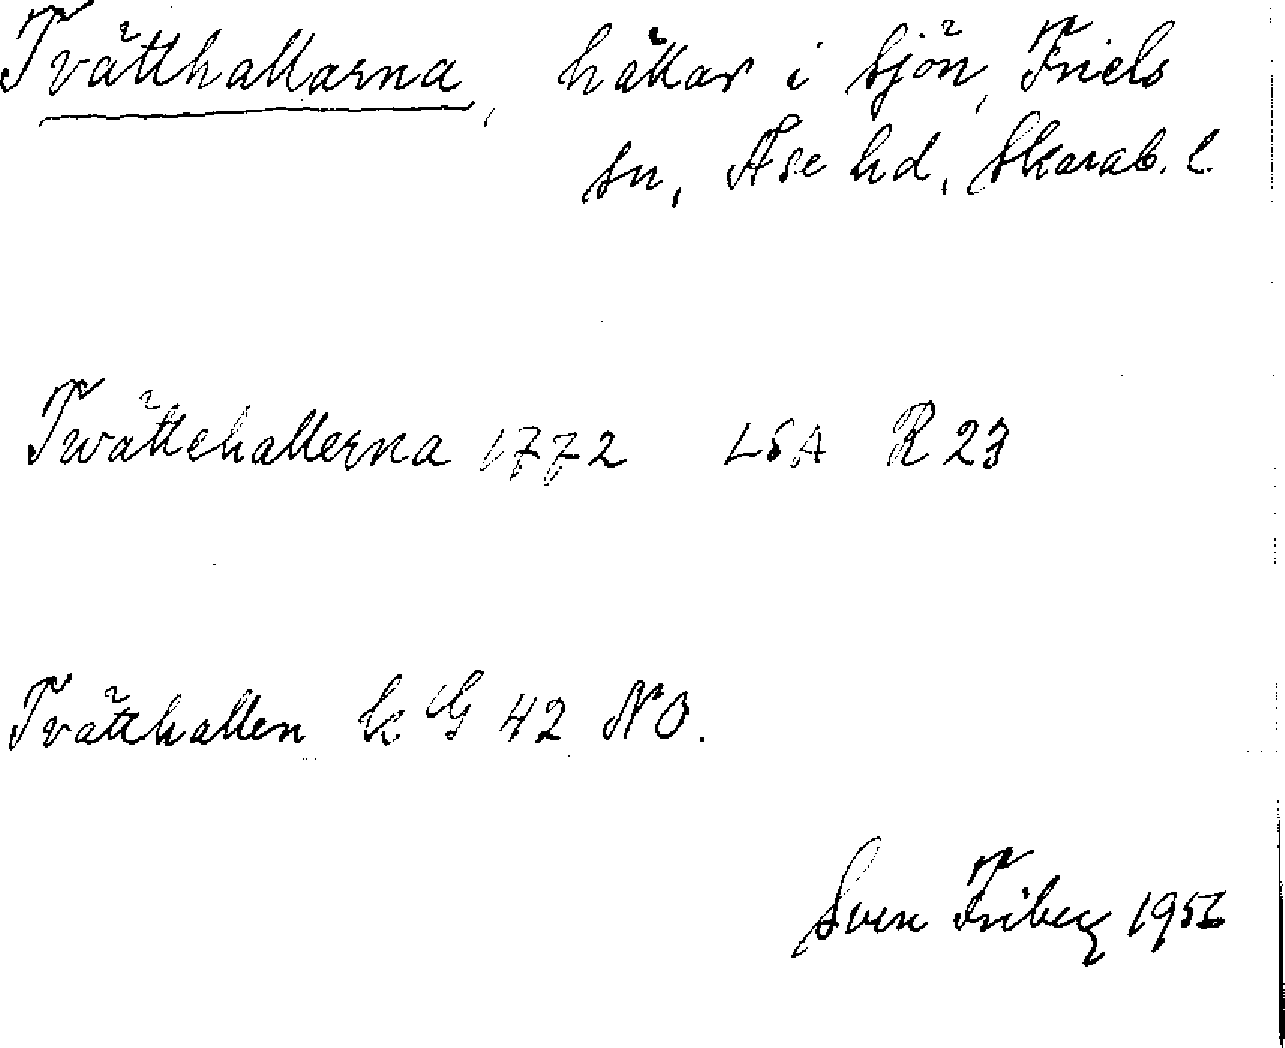 Tvätthallarna, hällar i sjön, Friels
sn, Åse hd, Skarab. l.
Twättehallerna 1772 LSA R 23
Tvätthallen k G 42 NO.
Sven Friberg 1956